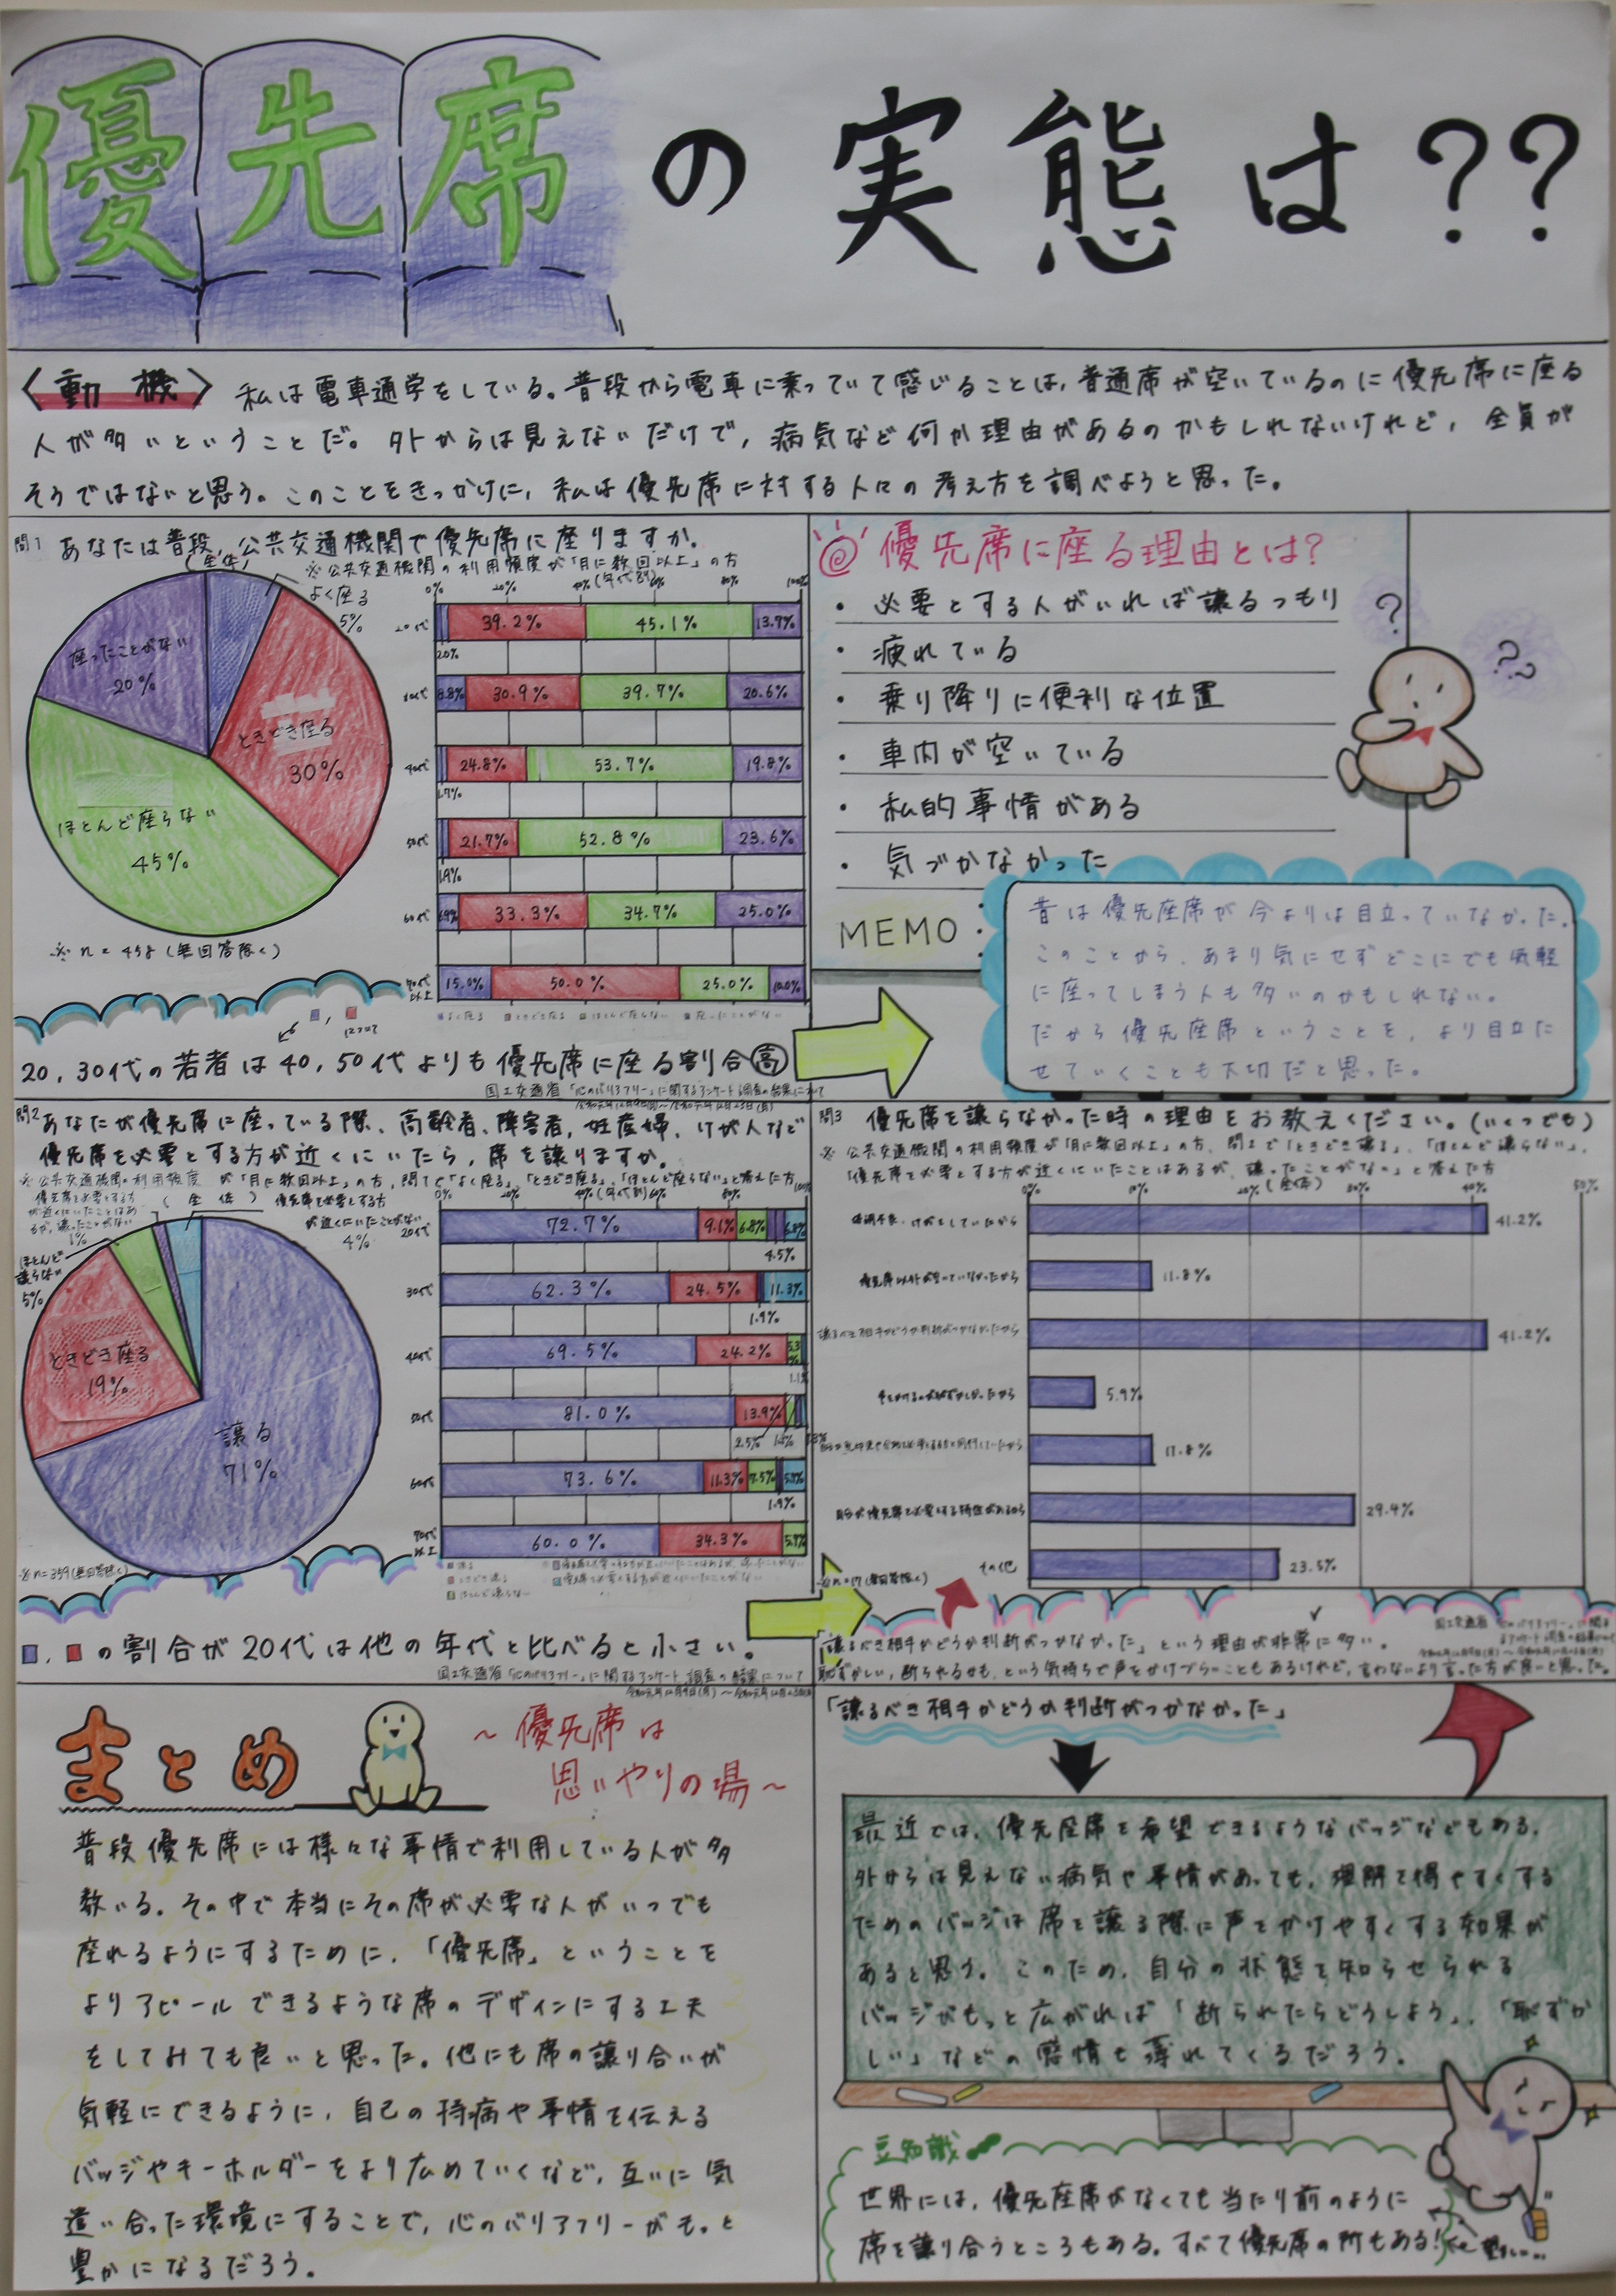 優先席の実態は??
〈動機〉私は電車通学をしている。普段から電車に乗っていて感じることは,普通席が空いているのに優先席に座る
人が多いということだ。外からは見えないだけで,病気など何か理由があるのかもしれないけれど,全員が
そうではないと思う。このことをきっかけに,私は優先席に対する人々の考え方を調べようと思った。
問1 あなたは普段,公共交通機関で優先席に座りますか。
(全体)
※公共交通機関の利用頻度が「月に数回以上」の方
よく座る
5%
ときどき座る
30%
ほとんど座らない
45%
座ったことがない
20%
(年代別)
0% 20% 40% 60% 80% 100%
20代 2.0% 39.2% 45.1% 13.7%
8.8% 30.9% 39.7% 20.6%
40代 1.7% 24.8% 53.7% 19.8%
50代 1.9% 21.7% 52.8% 23.6%
60代 6.9% 33.3% 34.7% 25.0%
70代以上 15.0% 50.0% 25.0% 10.0%
よく座る ときどき座る ほとんど座らない 座ったことがない
(無回答除く)
20,30代の若者は40,50代よりも優先席に座る割合高
国土交通省「心のバリアフリー」に関するアンケート調査の結果について
優先席に座る理由とは?
・必要とする人がいれば譲るつもり
・疲れている
・乗り降りに便利な位置
・車内が空いている
・私的事情がある
・気づかなかった
MEMO
昔は優先座席が今よりは目立っていなかった。
このことから、あまり気にせずどこにでも気軽
に座ってしまう人も多いのかもしれない。
だから優先座席ということを,より目立た
せていくことも大切だと思った。
問2 あなたが優先席に座っている際、高齢者、障害者,妊産婦、けが人など
優先席を必要とする方が近くにいたら,席を譲りますか。
※公共交通機関の利用頻度が「月に数回以上」の方,問1で「よく座る」,「ときどき座る」,「ほとんど座らない」と答えた方
(全体)
優先席を必要とする方
が近くにいたことはあ
るが、譲ったことがない
1%
優先席を必要とする方
が近くにいたことがない
4%
ほとんど
譲らない
5%
ときどき座る
19%
譲る
71%
※n=359(無回答除く)
(年代別)
20代 72.7% 9.1% 6.8% 4.5% 6.8%
30代 62.3% 24.5% 1.9% 11.3%
40代 69.5% 24.2% 5.3% 1.1%
50代 81.0% 13.9% 2.5%
60代 73.6% 11.3% 7.5% 1.9% 5.7%
70代以上 60.0% 34.3% 5.7%
譲る
ときどき譲る
ほとんど譲らない
優先席を必要とする方が近くにいたことがない
の割合が20代は他の年代と比べると小さい。
国土交通省「心のバリアフリー」に関するアンケート調査の結果について
問3 優先席を譲らなかった時の理由をお教えください。(いくつでも)
※公共交通機関の利用頻度が「月に数回以上」の方、問2で「ときどき譲る」,「ほとんど譲らない」,
「優先席を必要とする方が近くにいたことはあるが、譲ったことがない」と答えた方
(全体)
0% 10% 20% 30% 40% 50%
体調不良・けがをしていたから 41.2%
優先席以外が空いていなかったから 11.8%
譲るべき相手かどうか判断がつかなかったから 41.2%
声をかけるのが恥ずかしかったから 5.9%
11.8%
自分が優先席を必要とする特性があるから 29.4%
その他 23.5%
※n=17(無回答除く)
「譲るべき相手かどうか判断がつかなかった」という理由が非常に多い。
恥ずかしい,断られるかも、という気持ちで声をかけづらいこともあるけれど,言わないより言った方が良いと思った。
まとめ
～優先席は
思いやりの場～
普段優先席には様々な事情で利用している人が多
数いる。その中で本当にその席が必要な人がいつでも
座れるようにするために,「優先席」ということを
よりアピールできるような席のデザインにする工夫
をしてみても良いと思った。他にも席の譲り合いが
気軽にできるように,自己の持病や事情を伝える
バッジやキーホルダーをより広めていくなど,互いに気
遣い合った環境にすることで,心のバリアフリーがもっと
豊かになるだろう。
「譲るべき相手かどうか判断がつかなかった」
最近では、優先座席を希望できるようなバッジなどもある。
外からは見えない病気や事情があっても,理解を得やすくする
ためのバッジは席を譲る際に声をかけやすくする効果が
あると思う。このため,自分の状態を知らせられる
バッジがもっと広がれば「断られたらどうしよう」,「恥ずか
しい」などの感情も薄れてくるだろう。
豆知識
世界には,優先座席がなくても当たり前のように
席を譲り合うところもある。すべて優先席の所もある!